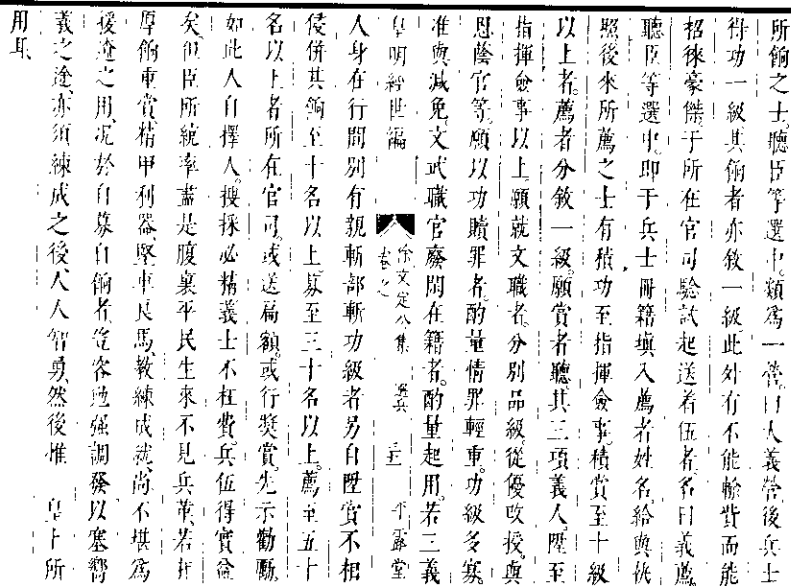 所餉之士聽臣等選中類爲一營曰人義營後兵士
得功一級其餉者亦敘一級此外有不能輸貲而能
招徠豪傑于所在官司驗試起送着伍者名曰義薦
聽臣等選中即于兵士冊籍塡入薦者姓名給與執
照後來所薦之士有積功至指揮僉事積賞至十級
以上者薦者分敘一級願賞者聽其三項義人陞至
指揮僉事以上願就文職者分別品級從優改授與
恩蔭官等願以功贖罪者酌量情罪輕重功級多寡
准與減免文武職官廢閒在籍者酌量起用若三義
皇明經世編
徐文定公集
卷之
選兵
平露堂
人身在行間別有親斬部斬功級者另自陞賞不相
侵併其餉至十名以上募至三十名以上薦至五十
名以上者所在官司或送扁額或行獎賞先示勸勵
如此人自擇人搜採必精義士不枉費兵伍得實益
矣但臣所統率盡是腹裏平民生來不見兵革若非
厚餉重賞精甲利器堅車良馬教練成就尚不堪爲
援遼之用況於自募自餉者豈容勉强調發以塞嚮
義之途亦須練成之後人人智勇然後惟 皇上所
用耳